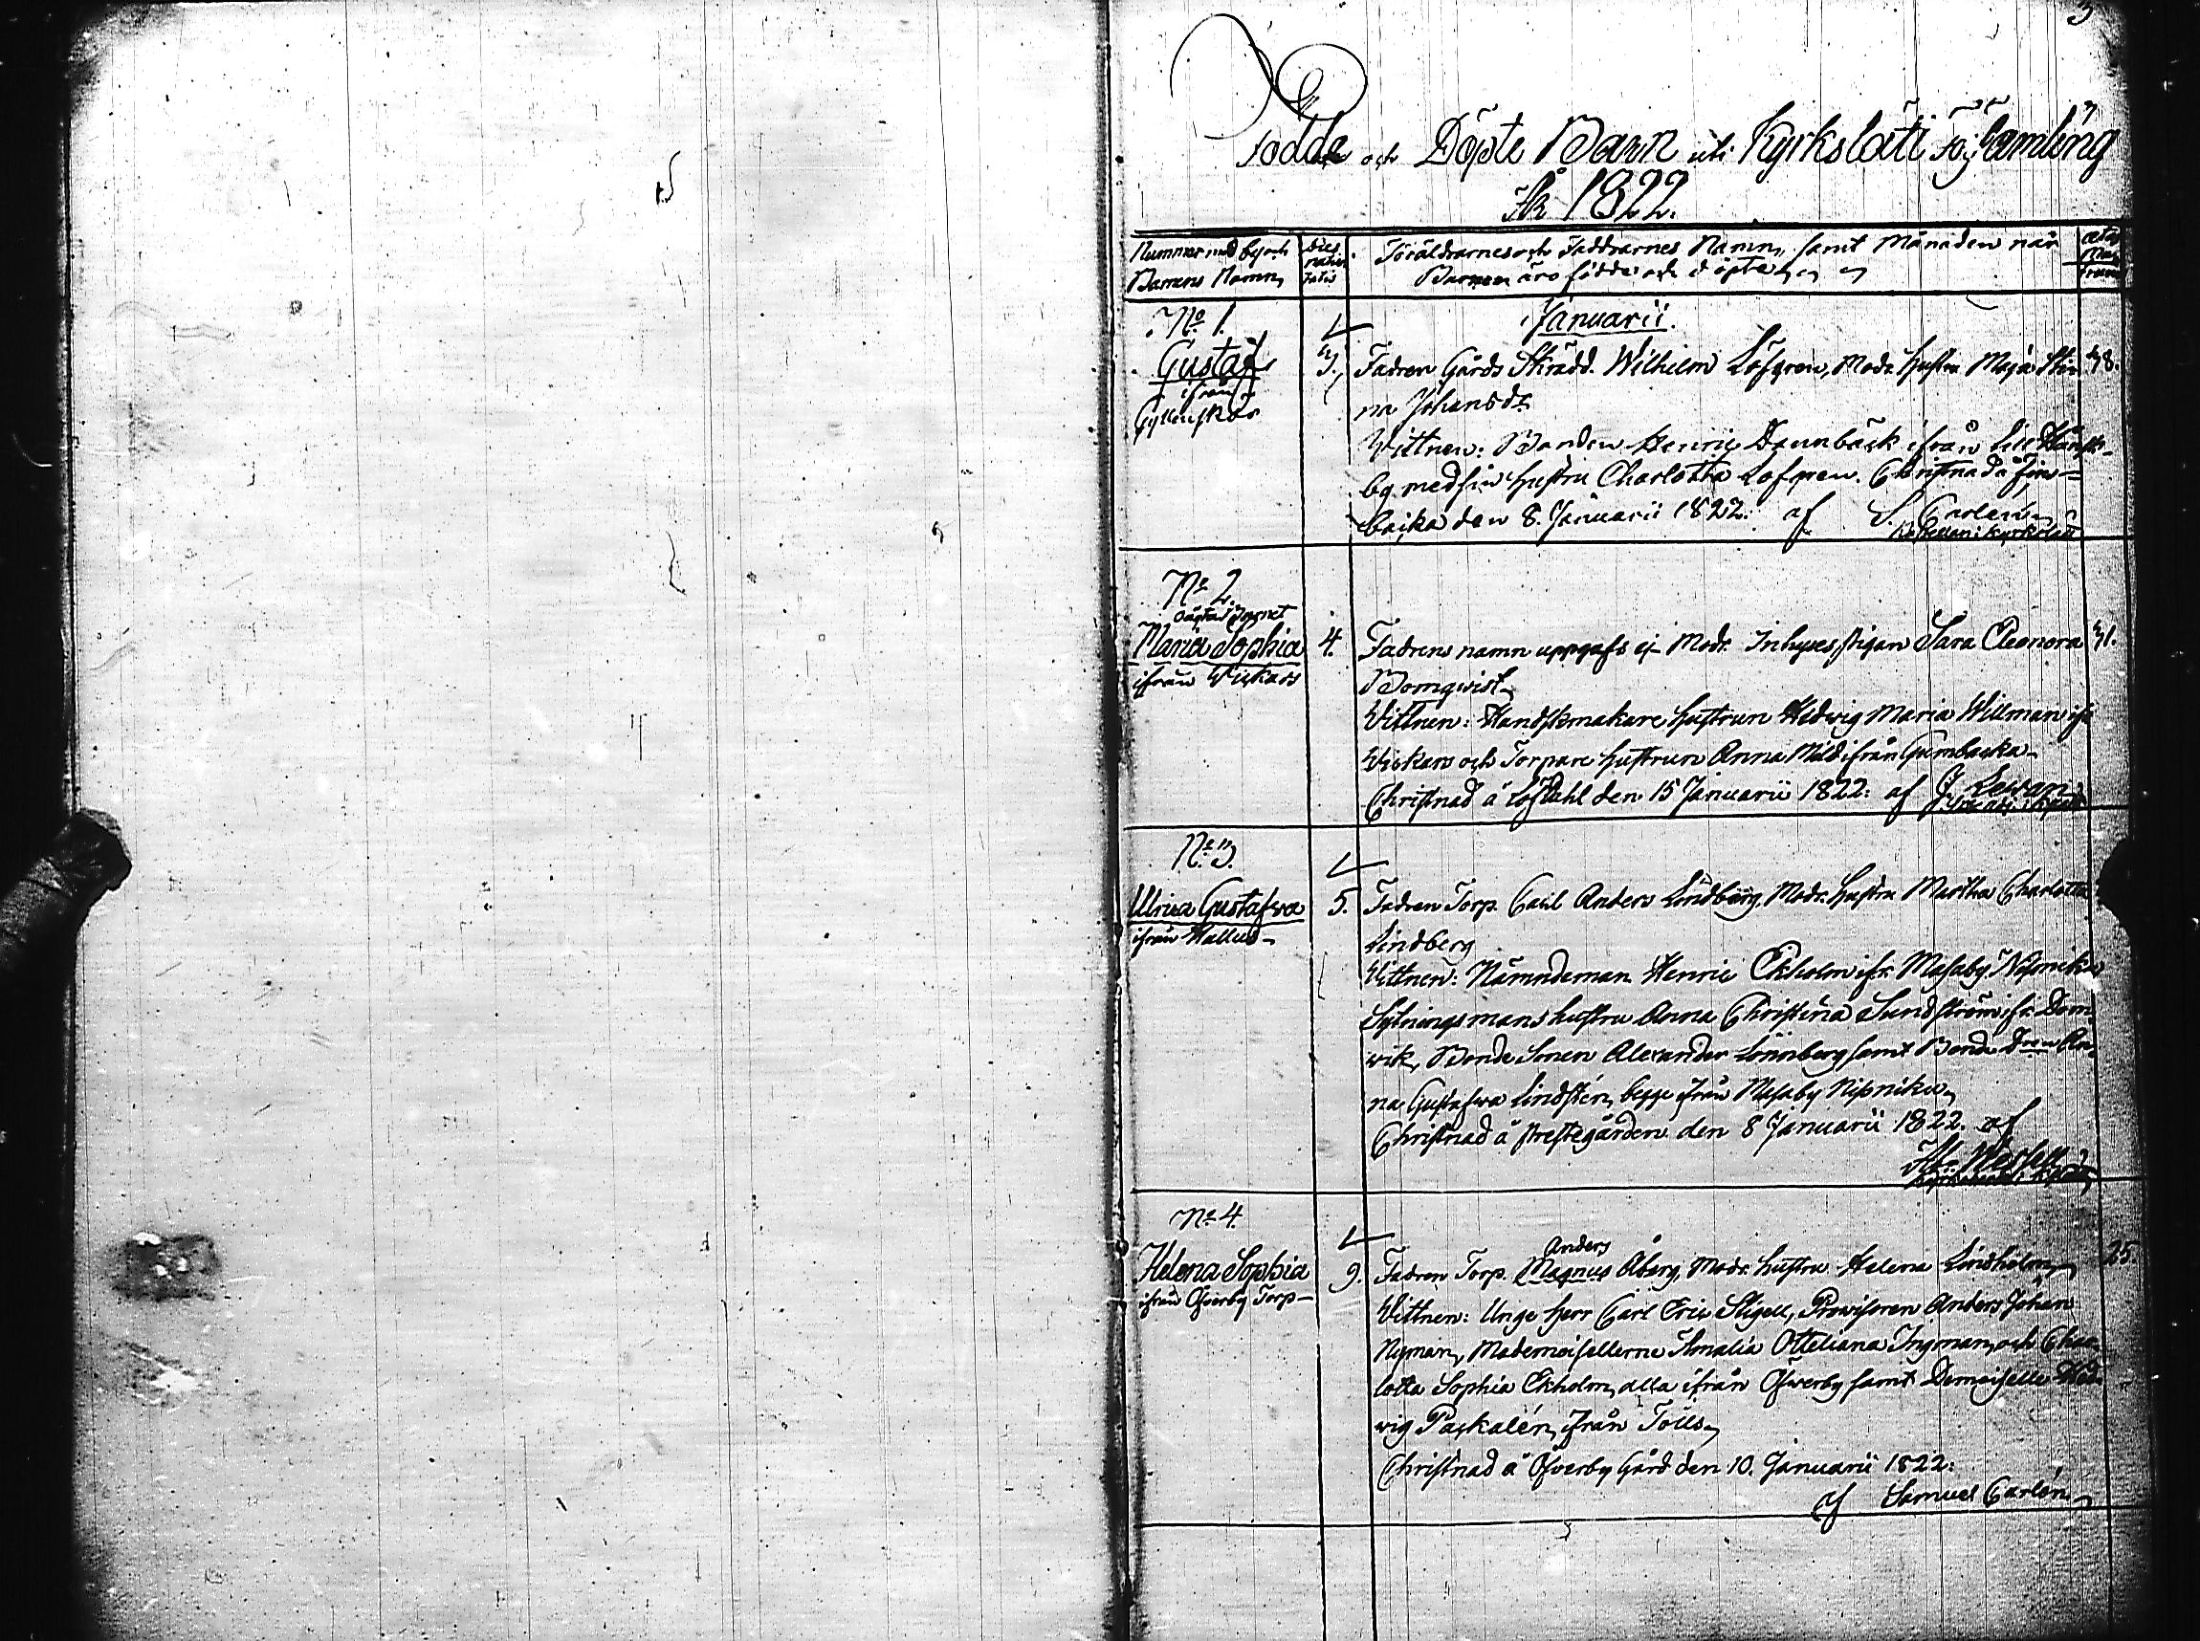 3
Födde och Döpte Barn uti Kyrkslätt Församling
År 1822.
Nummer med by och
Barnens Namn
Dies
nativi
tatis
Föräldrarnes och Faddrarnes Namn, samt Månaden när
Barnen äro födde och döpte
ætas
Ma
trum
Januarii.
No 1.
Gustaf
ifrån
Gyllenskär
3.
Fadren Gårds Skrädd. Wilhelm Löfgren, Modr. hustru Maja Stin
38.
na Johansdr.
Vittnen: Bonden Henric Dannbäck ifrån
by med sin hustru Charlotta Lofgren. Christnad å Fin=
backa den 8. Januarii 1822. af S. Carlén
Capellan i Kyrkslätt
No 2.
oägta Barnet
Maria Sophia
ifrån Wickars
4.
Fadrens namn uppgafs ej Modr. Inhyses pigan Sara Eleonora
31.
Blomqwist
Vittnen: Handskmakare hustrun Hedwig Maria Willman ifr.
Wickars och Torpare hustrun Anna Mild ifrån Gumbacka
Christnad å Löfdahl den 15 Januarii 1822: af
No 3.
Ulrica Gustafva
ifrån Wallus
5.
Fadren Torp. Carl Anders Lindberg, Modr. hustru Martha Charlotta
Lindberg
Vittnen: Nämndeman Henric Ekholm ifr. Masaby Nissnikus
Sytningsmans hustru Anna Christina Sundström ifr. Dom
wik, Bonde Sonen Alexander Lönnberg samt Bonde Dren An
na Gustafwa Lindstén, begge ifrån Masaby Nipnikus
Christnad å Prestegården den 8 Januarii 1822. af
No 4.
Helena Sophia
ifrån Öfverby Torp
9.
Anders
Fadren Torp. Magnus Åberg, Modr. hustru Helena Lindholm
25.
Vittnen: Unge Herr Carl Eric Stigell, Provisoren Anders Johan
Nyman, Mademoisellerne Amalia Otteliana Ingman, och Char
lotta Sophia Ekholm, alla ifrån Öfwerby samt Demoiselle Hed
wig Paskalén, ifrån Tolls
Christnad å Öfverby Gård den 10. Januarii 1822:
af Samuel Carlén